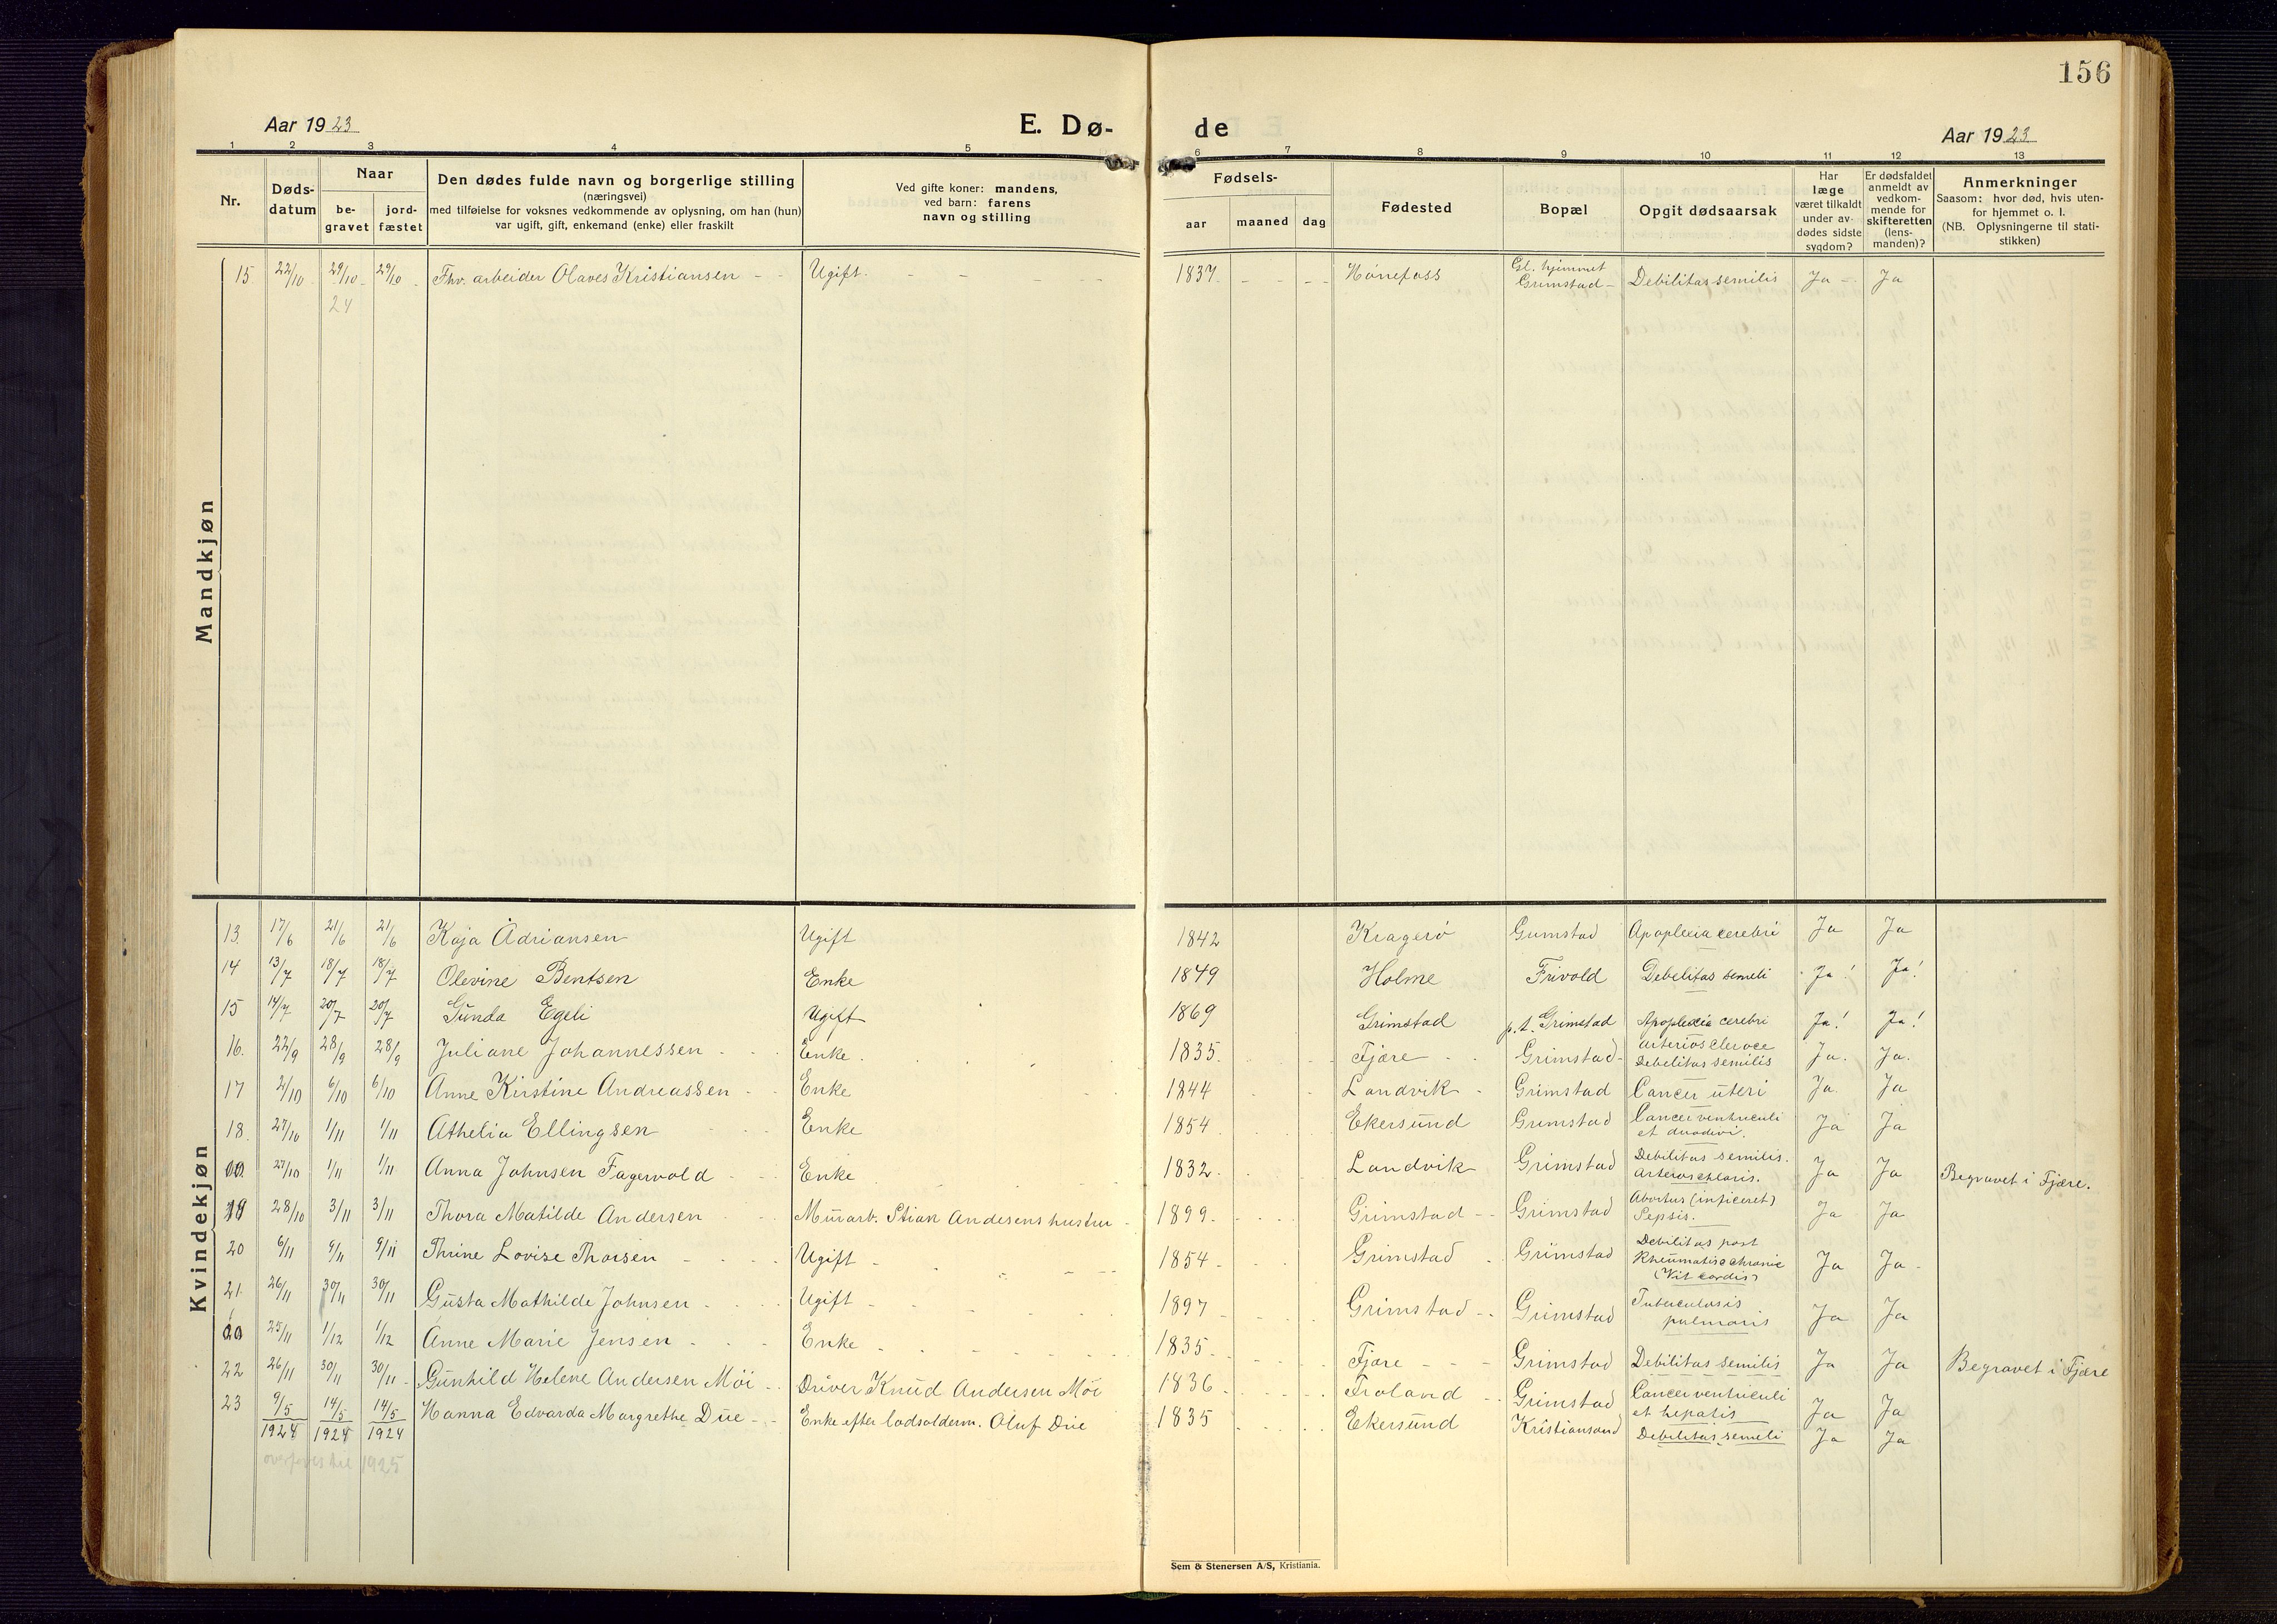 156
Aar 1923
E. Dø-
de
Aar 1923
1 2 3 4 5 6 7 8 9 10 11 12 13
Nr.
Døds-
datum
Naar
be-
gravet
jord-
fæstet
Den dødes fulde navn og borgerlige stilling
(næringsvei)
med tilføielse for voksnes vedkommende av oplysning, om han (hun)
var ugift, gift, enkemand (enke) eller fraskilt
Ved gifte koner: mandens,
ved barn: farens
navn og stilling
Fødsels-
aar maaned dag
Fødested
Bopæl
Opgit dødsaarsak
Har
læge
været tilkaldt
under av-
dødes sidste
sygdom?
Er dødsfaldet
anmeldt av
vedkom-
mende for
skifteretten
(lens-
manden)?
Anmerkninger
Saasom: hvor død, hvis uten-
for hjemmet o. l.
(NB. Oplysningerne til stati-
stikken)
Mandkjøn
15. 22/10 29/10 29/10 Fhv. arbeider Olaves Kristiansen - - Ugift. - - 1837. Hönefoss Gl. hjemmet Grimstad - Debilitas semilis Ja - Ja
24
Kvindekjøn
13. 17/6 21/6 21/6 Kaja Adriansen Ugift 1842 Kragerö Grimstad Apoplexia cerebri Ja Ja
14 13/7 18/7 18/7 Olevine Bentsen Enke 1849 Holme Frivold Debelitas semeli Ja! Ja!
15 14/7 20/7 20/7 Gunda Egeli Ugift 1869 Grimstad p.t. Grimstad Apoplexia cerebri Ja! Ja!
16. 22/9 28/9 28/9 Juliane Johannessen Enke. 1835. Fjære Grimstad - arterios cleroce Debilitas semilis Ja. Ja.
17 2/10 6/10 6/10 Anne Kirstine Andreassen Enke 1844 Landvik Grimstad Cancer uteri Ja. Ja
18. 27/10 1/11 1/11 Athelia Ellingsen Enke 1854 Ekersund Grimstad Cancer ventriculi et duodivi. Ja Ja
27/10 1/11 1/11 Anna Johnsen Fagervold Enke 1832. Landvik Grimstad Debilitas semilis. Arterioschlaris. Ja Ja Begravet i Fjære.
19 28/10 3/11 3/11 Thora Matilde Andersen Murarb. Stian Andersens hustru 1899. Grimstad Grimstad Abortus (inficeret) Sepsis. Ja Ja
20 6/11 9/11 9/11 Thrine Lovise Thorsen Ugift 1854 Grimstad Grimstad Debilitas post Rheumatisc chronic (Vit cordis) Ja Ja
21. 26/11 30/11 30/11 Gusta Mathilde Johnsen Ugift 1897 Grimstad Grimstad Tuberculosis pulmonis Ja Ja
25/11 1/12 1/12 Anne Marie Jensen Enke 1835. Fjære Grimstad Debilitas semilis Ja Ja Begravet i Fjære
22 26/11 30/11 30/11 Gunhild Helene Andersen Möi Driver Knud Andersen Möi 1836 Froland Grimstad Cancer ventriculi et hepatis Ja Ja
23 9/5 1924 14/5 1924 14/5 1924 Hanna Edvarda Margrethe Due Enke efter lodsolderm. Oluf Due 1835 Ekersund Kristiansand Debilitas semeli Ja Ja
overføres til 1925
Sem & Stenersen A/S, Kristiania.